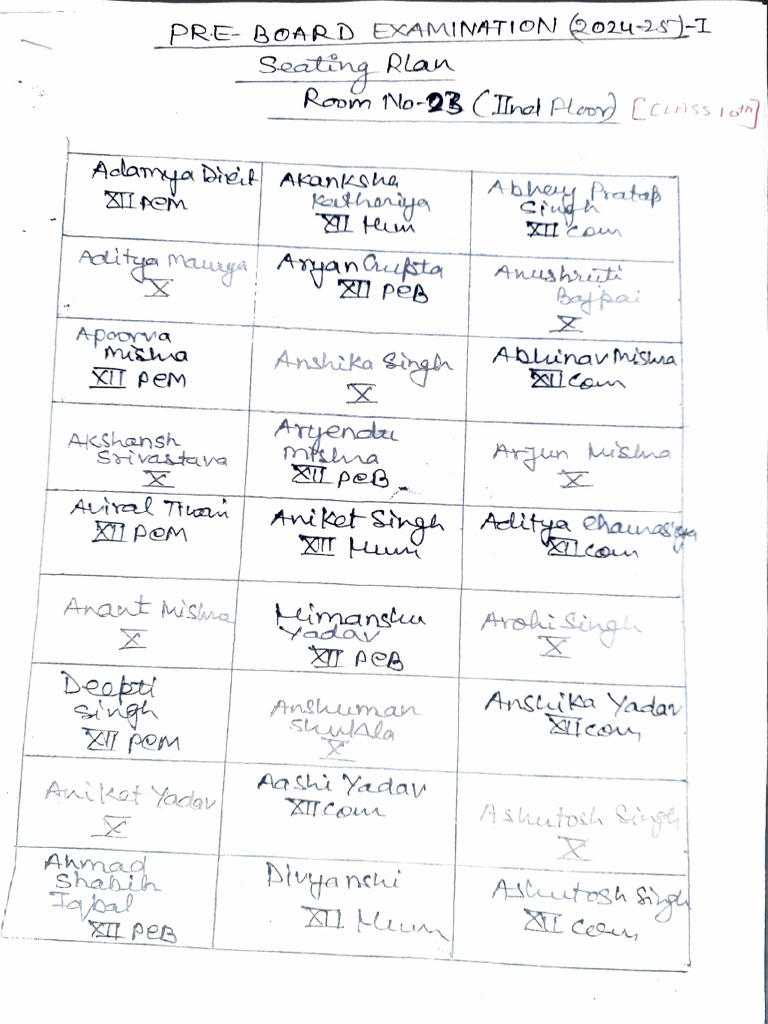 PRE-BOARD EXAMINATION (2024-25)-I
Seating Plan
Room No-23 (IInd Floor) [CLASS 10th]
Adamya Dixit
XII PCM
Akanksha
Katheriya
XII Hum
Abhey Pratap
Singh
XII Com
Aditya Maurya
X
Aryan Gupta
XII PCB
Anushruti
Bajpai
X
Apoorva
Mishra
XII PCM
Anshika Singh
X
Abhinav Mishra
XII Com
Akshansh
Srivastava
X
Aryendu
Mishra
XII PCB
Arjun Mishra
X
Aviral Tiwari
XII PCM
Aniket Singh
XIII Hum
Aditya Chaurasiya
XII Com
Anant Mishra
X
Himanshu
Yadav
XII PCB
Arohi Singh
X
Deepti
Singh
XII PCM
Anshuman
Shukla
X
Anshika Yadav
XII Com
Aniket Yadav
X
Aashi Yadav
XII Com
Ashutosh Singh
X
Ahmad
Shabih
Iqbal
XII PCB
Divyanshi
XII Hum
Ashutosh Singh
XII Com